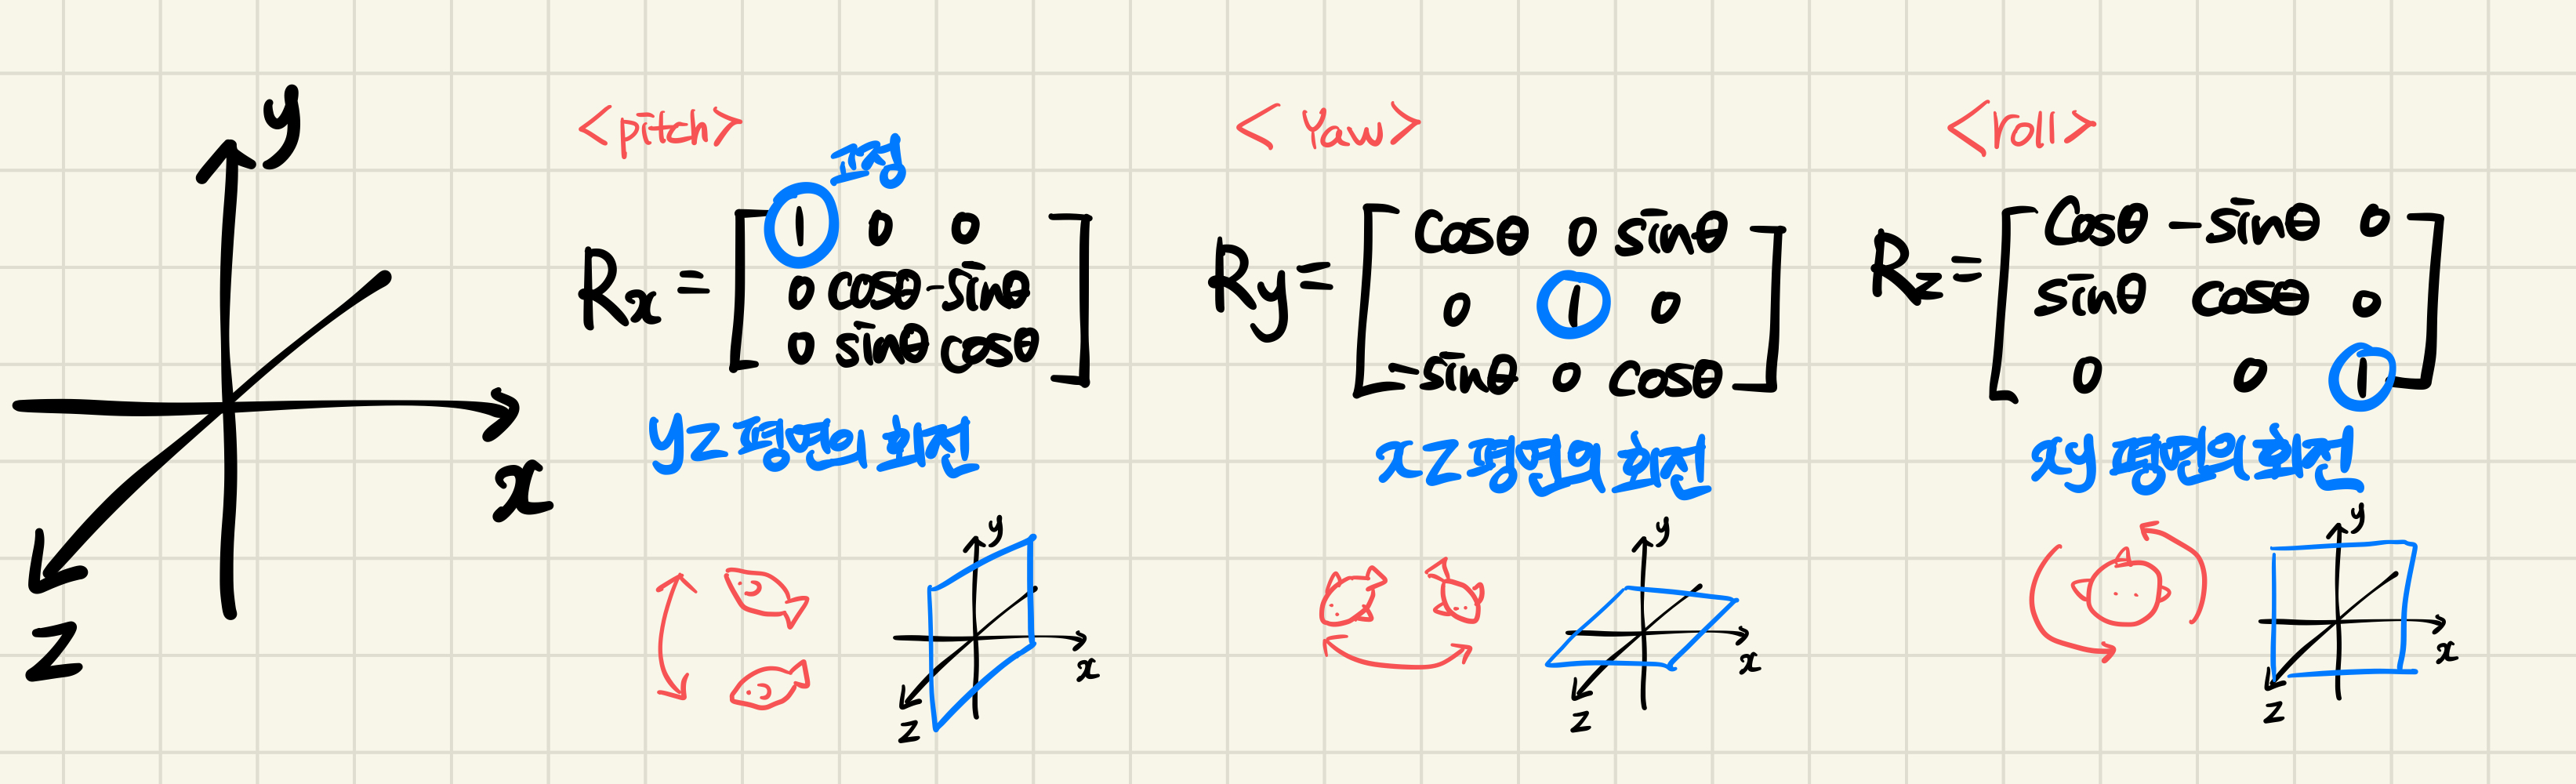 y
x
z
<pitch>
고정
Rx = [ 1 0 0
0 cosθ -sinθ
0 sinθ cosθ ]
yz 평면의 회전
y
x
z
<Yaw>
Ry = [ cosθ 0 sinθ
0 1 0
-sinθ 0 cosθ ]
xz 평면의 회전
y
x
z
<roll>
Rz = [ cosθ -sinθ 0
sinθ cosθ 0
0 0 1 ]
xy 평면의 회전
y
x
z